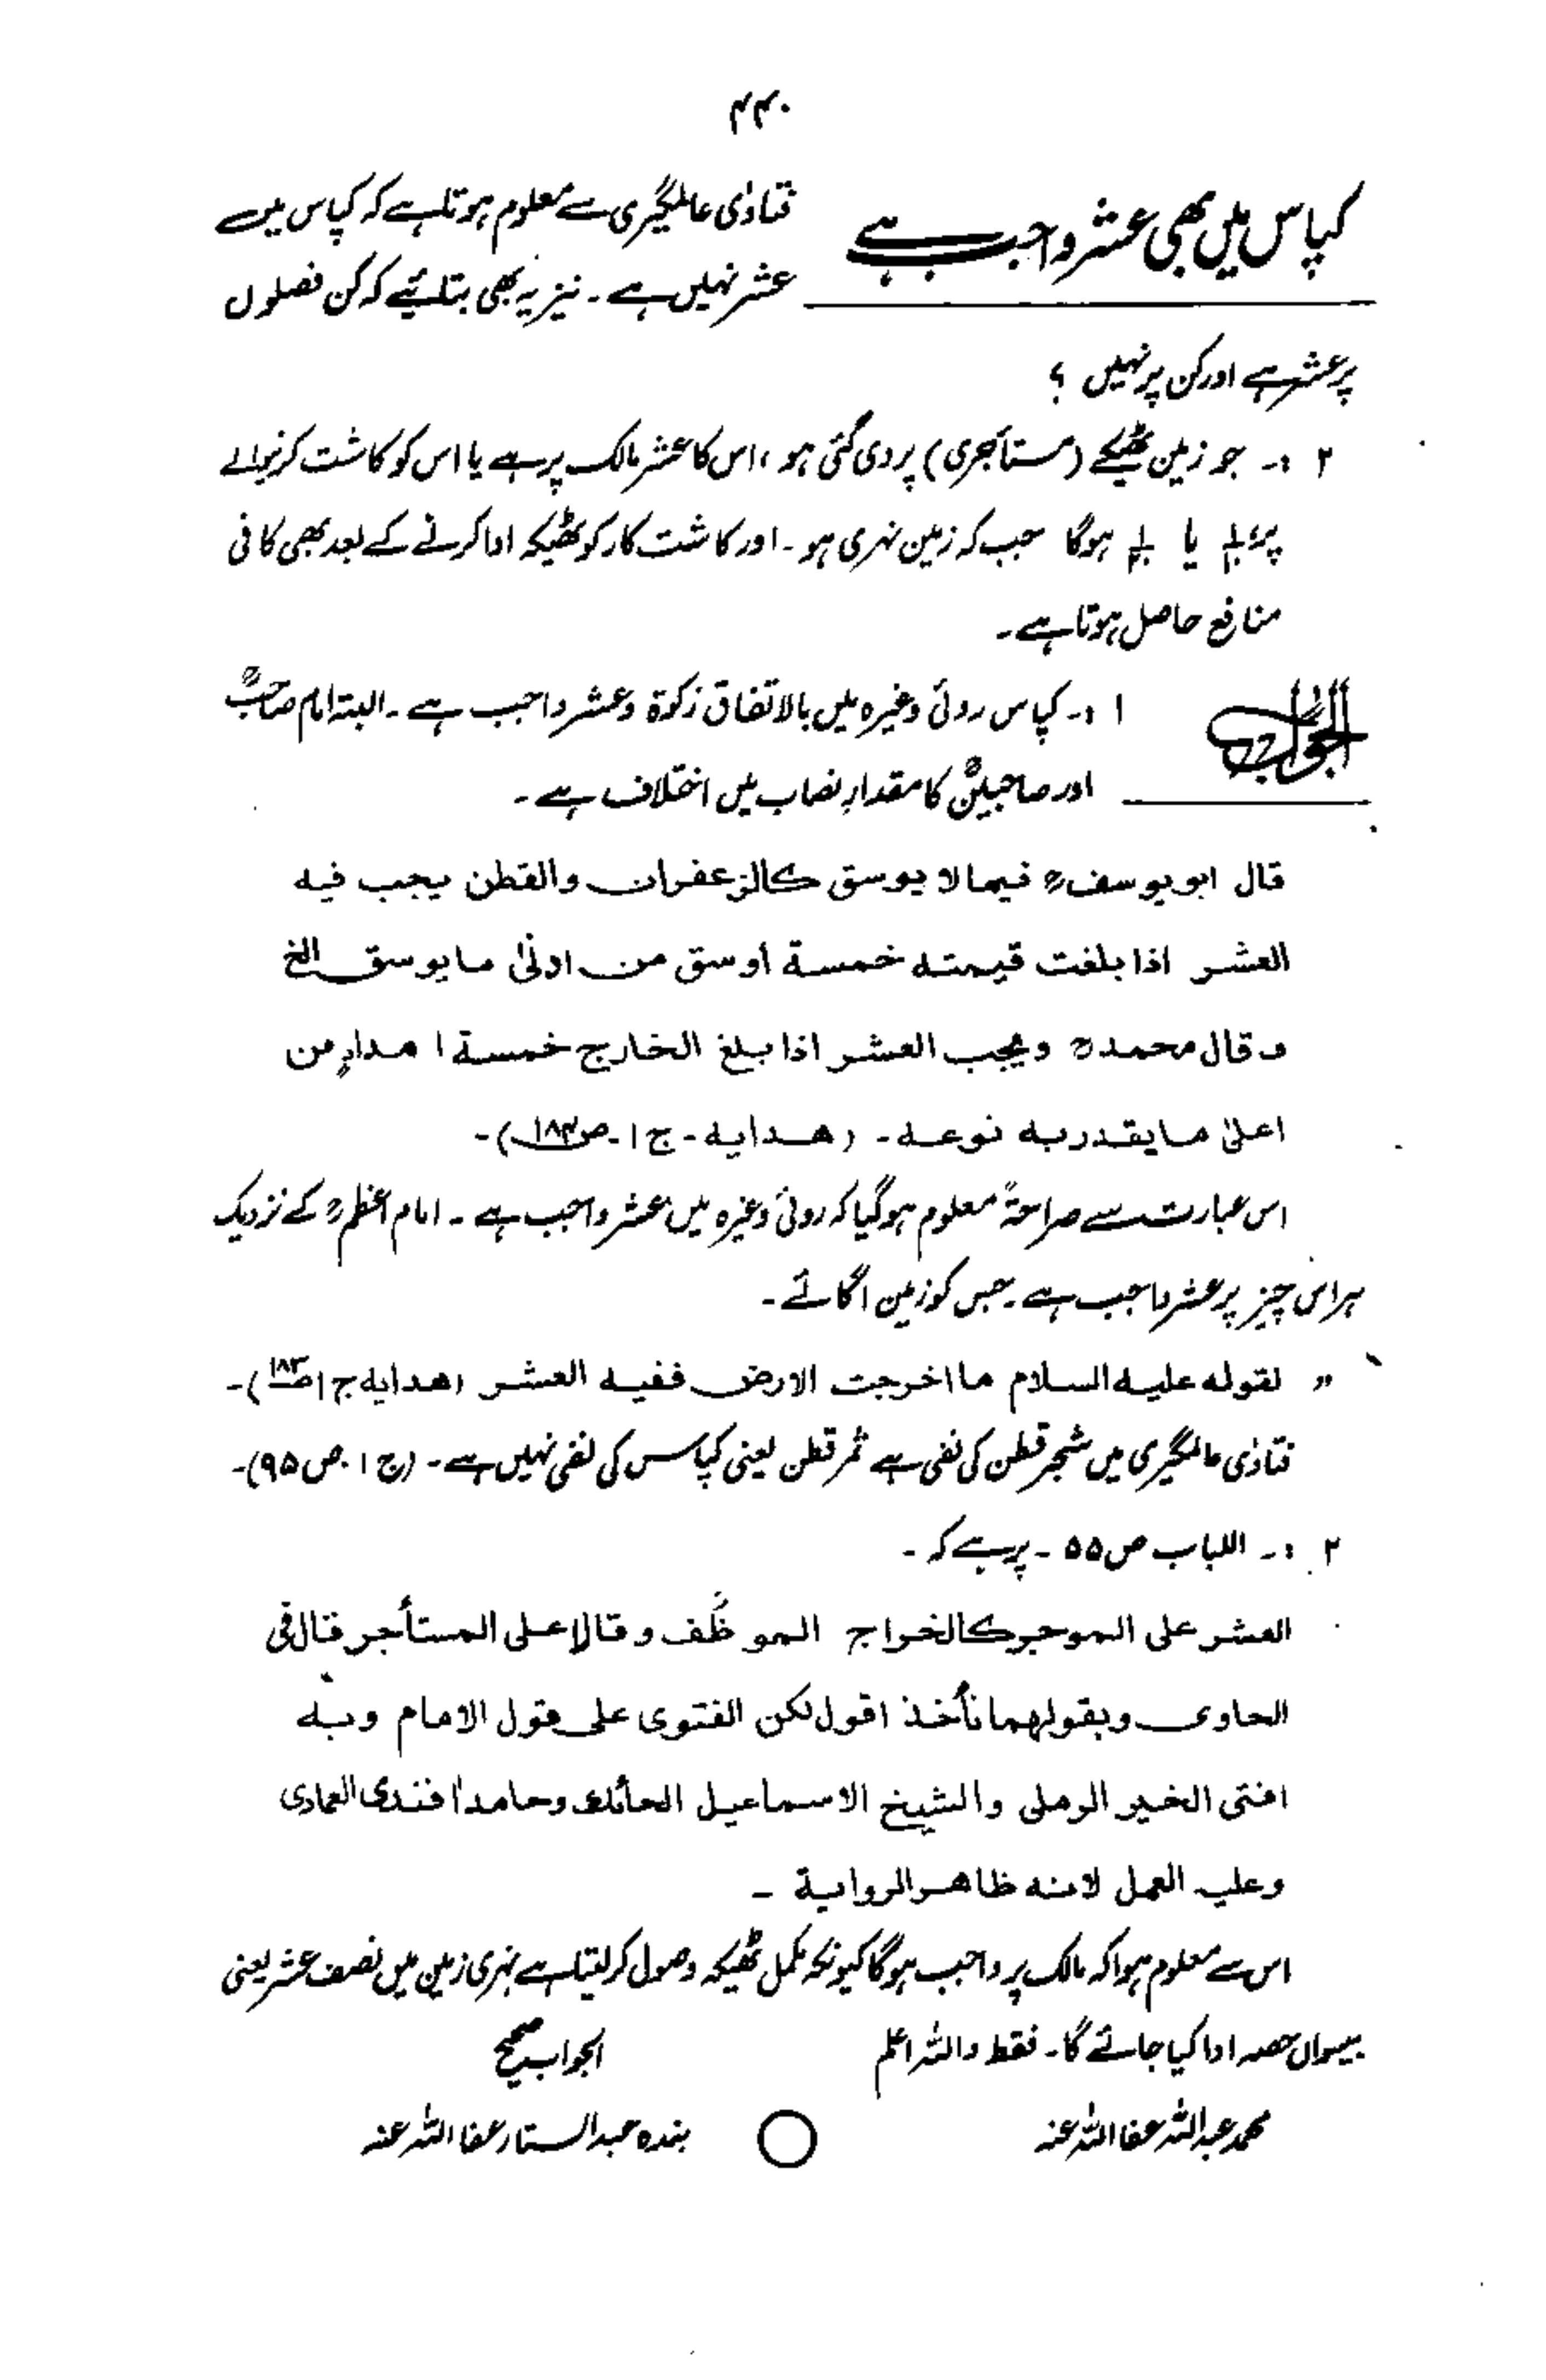 ۴۴۰
کپاس میں بھی عشر واجب ہے
فتاوٰی عالمگیری سے معلوم ہوتا ہے کہ کپاس میں
عشر نہیں ہے ۔ نیز یہ بھی بتائیے کہ کن فصلوں
پر عشر ہے اور کن پر نہیں ؟
۲ :۔ جو زمین ٹھیکے (مستأجری) پر دی گئی ہو ، اس کا عشر مالک پر ہے یا اس کو کاشت کرنیوالے
پر یا ہوگا جب کہ زمین نہری ہو ۔ اور کاشت کار کو ٹھیکہ ادا کرنے کے بعد بھی کافی
منافع حاصل ہوتا ہے ۔
الجواب
۱ :۔ کپاس روئی وغیرہ میں بالاتفاق زکوٰۃ و عشر واجب ہے ۔ البتہ امام صاحبؒ
اور صاحبینؒ کا مقدارِ نصاب میں اختلاف ہے ۔
قال ابو یوسفؒ فیما لا یوسق کالزعفران والقطن یجب فیه
العشر اذا بلغت قیمته خمسة أوسق من ادنیٰ ما یوسق الخ
وقال محمدؒ ویجب العشر اذا بلغ الخارج خمسة امدادٍ من
اعلیٰ ما یقدر به نوعه ۔ (هدایه ۔ ج ۱ ۔ ص۱۸۳) ۔
اس عبارت سے صراحۃً معلوم ہو گیا کہ روئی وغیرہ میں عشر واجب ہے ۔ امام اعظمؒ کے نزدیک
ہر اس چیز پر عشر واجب ہے ۔ جس کو زمین اگائے ۔
” لقوله علیه السلام ما اخرجت الارض ففیه العشر (هدایه ج ۱ ص۱۸۳) ۔
فتاوٰی عالمگیری میں شجر قطن کی نفی ہے ثمر قطن یعنی کپاس کی نفی نہیں ہے ۔ (ج ۱ ۔ ص ۹۵) ۔
۲ :۔ اللباب ص ۵۵ ۔ پر ہے کہ ۔
العشر علی الموجر کالخراج الموظَّف وقالا علی المستأجر قال فی
الحاوی وبقولهما نأخذ اقول لکن الفتوی علی قول الامام وبه
افتی الخیر الرملی والشیخ الاسماعیل الحائک وحامد افندی العمادی
وعلیه العمل لانه ظاهر الروایة ۔
اس سے معلوم ہوا کہ مالک پر واجب ہوگا کیونکہ مکمل ٹھیکہ وصول کر لیتا ہے نہری زمین میں نصف عشر یعنی
بیسواں حصہ ادا کیا جائے گا ۔ فقط واللہ اعلم
الجواب صحیح
محمد عبداللہ عفا اللہ عنہ
بندہ عبدالستار عفا اللہ عنہ